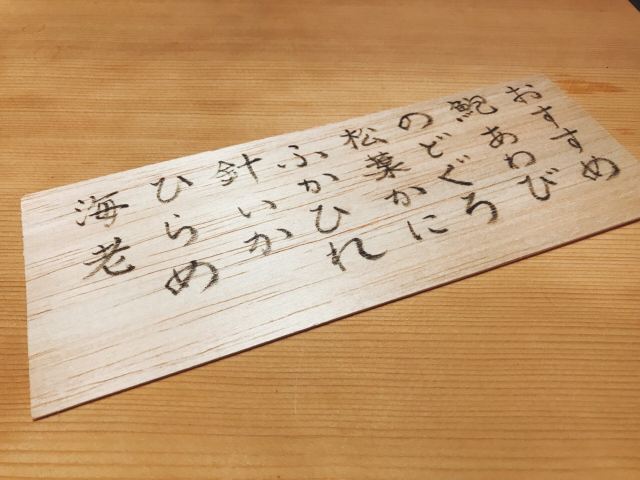 おすすめ
鮑あわび
のどぐろ
松葉かに
ふかひれ
針いか
ひらめ
海老